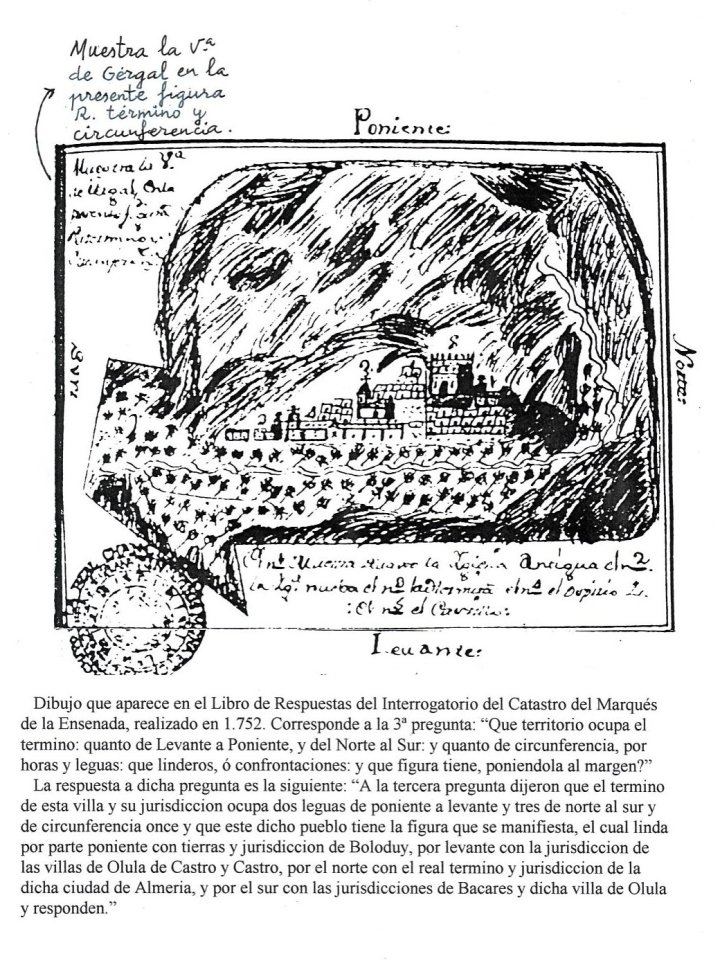 Muestra la Vª
de Gérgal en la
presente figura
R. término y
circunferencia.
Poniente:
Muestra la Vª
Sur
Norte:
8
2
El nº Muestra la Iglesia Antigua el nº 2.
la Igª nueba el nº la Hermita el nº 4 el
: El nº el
Leuante:
Dibujo que aparece en el Libro de Respuestas del Interrogatorio del Catastro del Marqués
de la Ensenada, realizado en 1.752. Corresponde a la 3ª pregunta: “Que territorio ocupa el
termino: quanto de Levante a Poniente, y del Norte al Sur: y quanto de circunferencia, por
horas y leguas: que linderos, ó confrontaciones: y que figura tiene, poniendola al margen?”
La respuesta a dicha pregunta es la siguiente: “A la tercera pregunta dijeron que el termino
de esta villa y su jurisdiccion ocupa dos leguas de poniente a levante y tres de norte al sur y
de circunferencia once y que este dicho pueblo tiene la figura que se manifiesta, el cual linda
por parte poniente con tierras y jurisdiccion de Boloduy, por levante con la jurisdiccion de
las villas de Olula de Castro y Castro, por el norte con el real termino y jurisdiccion de la
dicha ciudad de Almeria, y por el sur con las jurisdicciones de Bacares y dicha villa de Olula
y responden.”